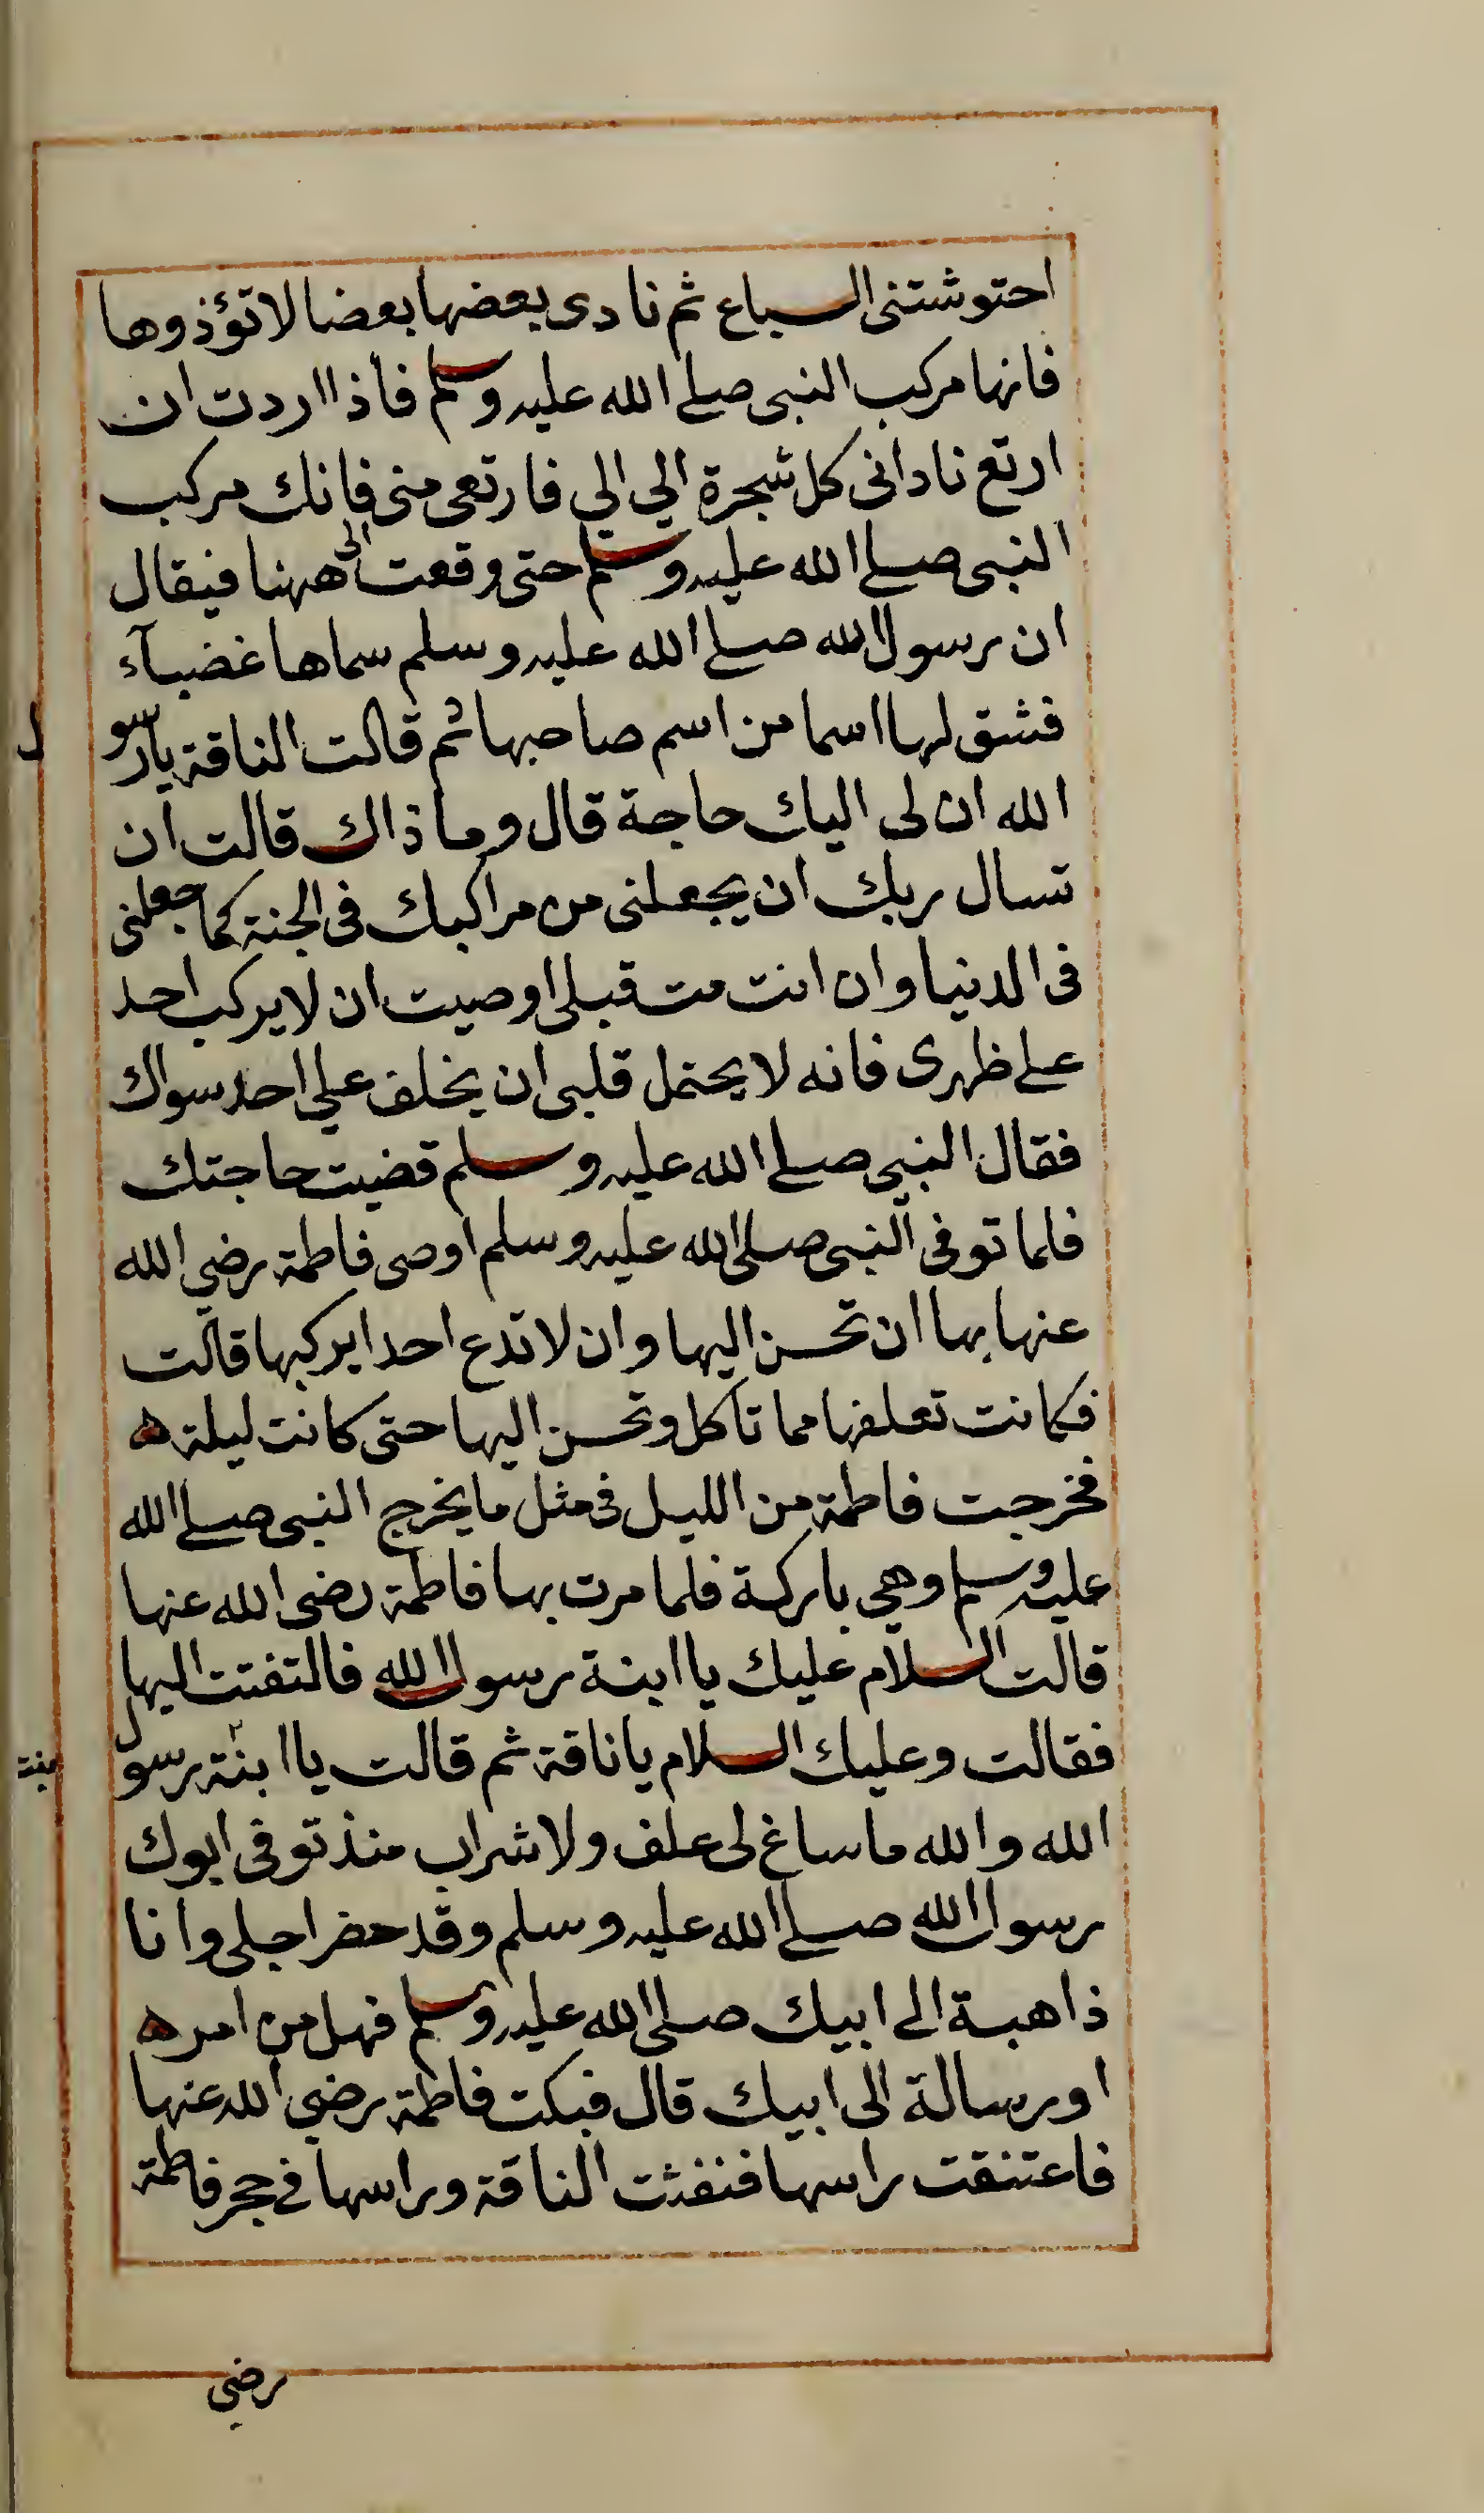 احتوشتنى السباع ثم نادى بعضها بعضا لا تؤذوها
فانها مركب النبى صلى الله عليه وسلم فأذا اردت ان
ارتع نادانى كل شجرة الي الي فارتعى منى فانك مركب
النبى صلى الله عليه وسلم حتى وقعت الى ههنا فيقال
ان رسول الله صلى الله عليه وسلم سماها غضبآء
فشق لها اسما من اسم صاحبها ثم قالت الناقة يا رسو
ل
الله ان لى اليك حاجة قال وما ذاك قالت ان
تسال ربك ان يجعلنى من مراكبك فى الجنة كما جعلنى
فى الدنيا وان انت مت قبلى اوصيت ان لا يركب احد
على ظهرى فانه لا يحتمل قلبى ان يخلف علي احد سواك
فقال النبى صلى الله عليه وسلم قضيت حاجتك
فلما توفى النبى صلى الله عليه وسلم اوصى فاطمة رضي الله
عنها بها ان تحسن اليها وان لا تدع احدا يركبها قالت
فكانت تعلفها مما تأكل وتحسن اليها حتى كانت ليلة ه
فخرجت فاطمة من الليل فى مثل ما يخرج النبى صلى الله
عليه وسلم وهي باركة فلما مرت بها فاطمة رضى الله عنها
قالت السلام عليك يا ابنة رسول الله فالتفتت اليها
فقالت وعليك السلام يا ناقة ثم قالت يا ابنة رسول
بنت
الله والله ما ساغ لى علف ولا شراب منذ توفى ابوك
رسول الله صلى الله عليه وسلم وقد حضر اجلى وانا
ذاهبة الى ابيك صلى الله عليه وسلم فهل من امر ه
او رسالة الى ابيك قال فبكت فاطمة رضي الله عنها
فاعتنقت راسها فنفثت الناقة وراسها فى حجر فاطمة
رضي